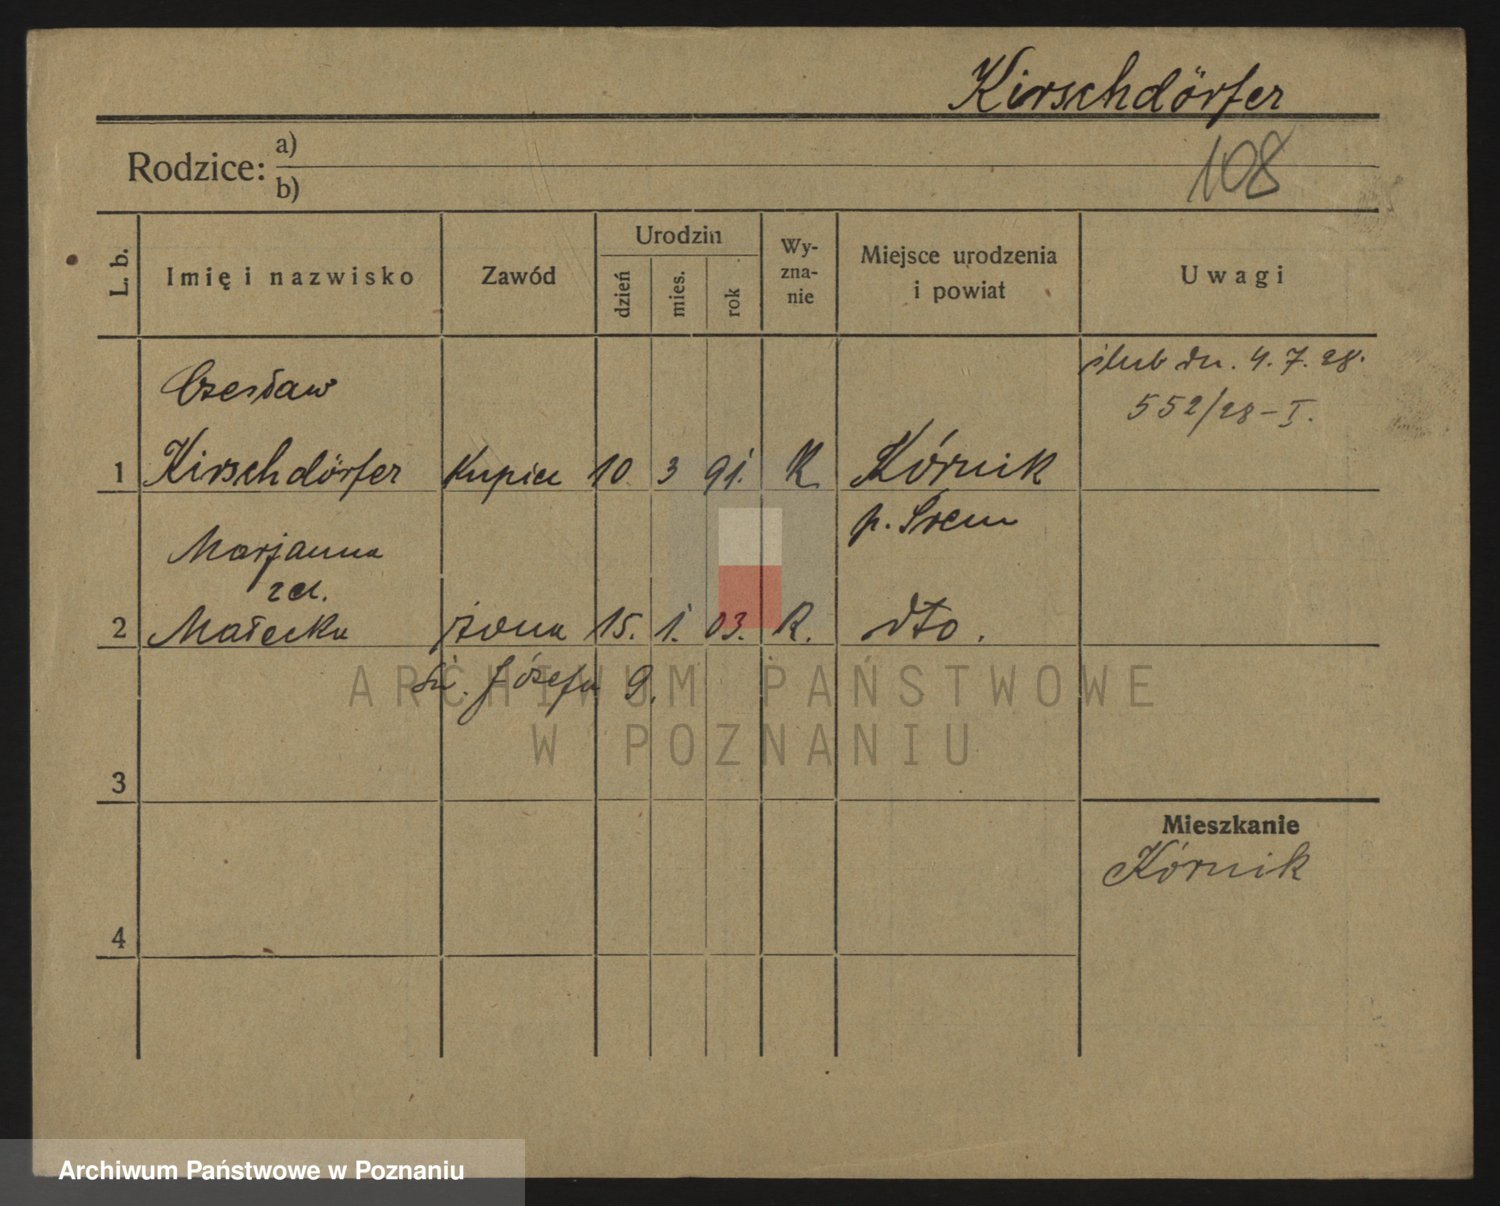 Kirschdörfer
108
Rodzice: a)
b)
L. b. Imię i nazwisko Zawód Urodzin dzień mies. rok Wy-zna-nie Miejsce urodzenia i powiat Uwagi
ślub dn. 4.7.28.
Czesław
552/28-I.
1 Kirschdörfer Kupiec 10 3 91. K Kórnik
p. Śrem
Marjanna
zd.
2 Małecka żona 15. 1. 03. R. dto.
Św. Józefa 9.
ARCHIWUM PAŃSTWOWE
W POZNANIU
3
Mieszkanie
Kórnik
4
Archiwum Państwowe w Poznaniu